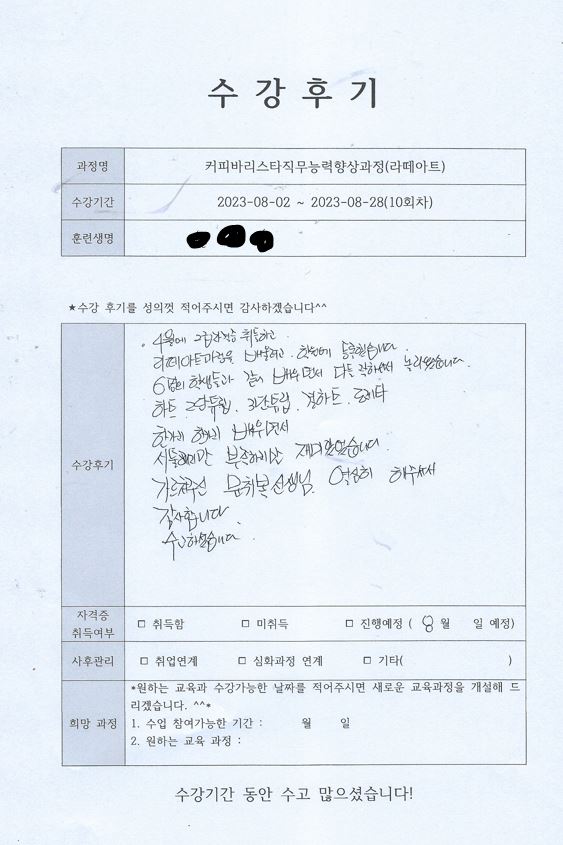 수 강 후 기
과정명 커피바리스타직무능력향상과정(라떼아트)
수강기간 2023-08-02 ~ 2023-08-28(10회차)
훈련생명
★수강 후기를 성의껏 적어주시면 감사하겠습니다^^
수강후기
4월에 2급자격증 취득하고
라떼아트과정을 배울려고 학원에 등록했습니다.
6명의 학생들과 같이 배우면서 다들 잘하셔서 놀라웠습니다.
하트 2단튤립, 3단튤립, 결하트, 로제타
한가지 한가지 배우면서
서툴지만 부족하지만 재미있었습니다.
가르쳐주신 선생님 열심히 해주셔서
감사합니다.
수고하셨습니다.
자격증 취득여부 □ 취득함 □ 미취득 □ 진행예정 ( 8 월 일 예정)
사후관리 □ 취업연계 □ 심화과정 연계 □ 기타( )
희망 과정
*원하는 교육과 수강가능한 날짜를 적어주시면 새로운 교육과정을 개설해 드
리겠습니다. ^^*
1. 수업 참여가능한 기간 : 월 일
2. 원하는 교육 과정 :
수강기간 동안 수고 많으셨습니다!